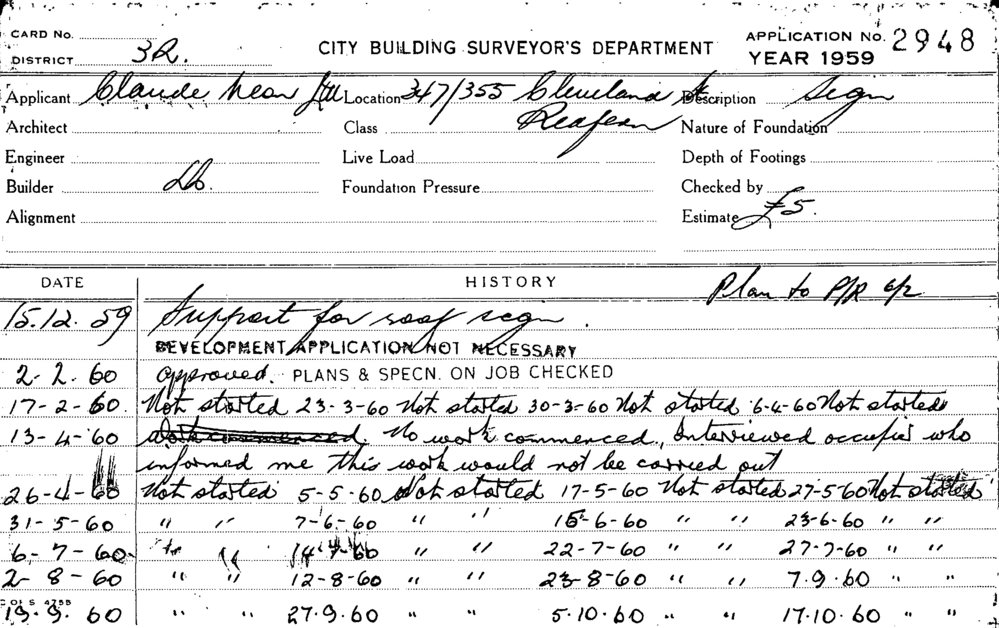 CARD No.
DISTRICT 3R. CITY BUILDING SURVEYOR'S DEPARTMENT APPLICATION No. 2948
YEAR 1959
Applicant Claude Neon Ltd Location 347/355 Cleveland St Description Sign
Architect Class Redfern Nature of Foundation
Engineer Live Load Depth of Footings
Builder Do. Foundation Pressure Checked by
Alignment Estimate £5.
DATE HISTORY Plan to P/R 6/2
15.12.59 Support for roof sign.
DEVELOPMENT APPLICATION NOT NECESSARY
2-2-60 Approved. PLANS & SPECN. ON JOB CHECKED
17-2-60. Not started 23-3-60 Not started 30-3-60 Not started 6-4-60 Not started
13-4-60 Work commenced. No work commenced, Interviewed occupier who
informed me this work would not be carried out
26-4-60 Not started 5-5-60 Not started 17-5-60 Not started 27-5-60 Not started
31-5-60 " " 7-6-60 " " 15-6-60 " " 23-6-60 " "
6-7-60 " " 14-7-60 " " 22-7-60 " " 27-7-60 " "
2-8-60 " " 12-8-60 " " 23-8-60 " " 7.9.60 " "
COLS 4755
19.9.60 " " 27.9.60 " " 5.10.60 " " 17.10.60 " "